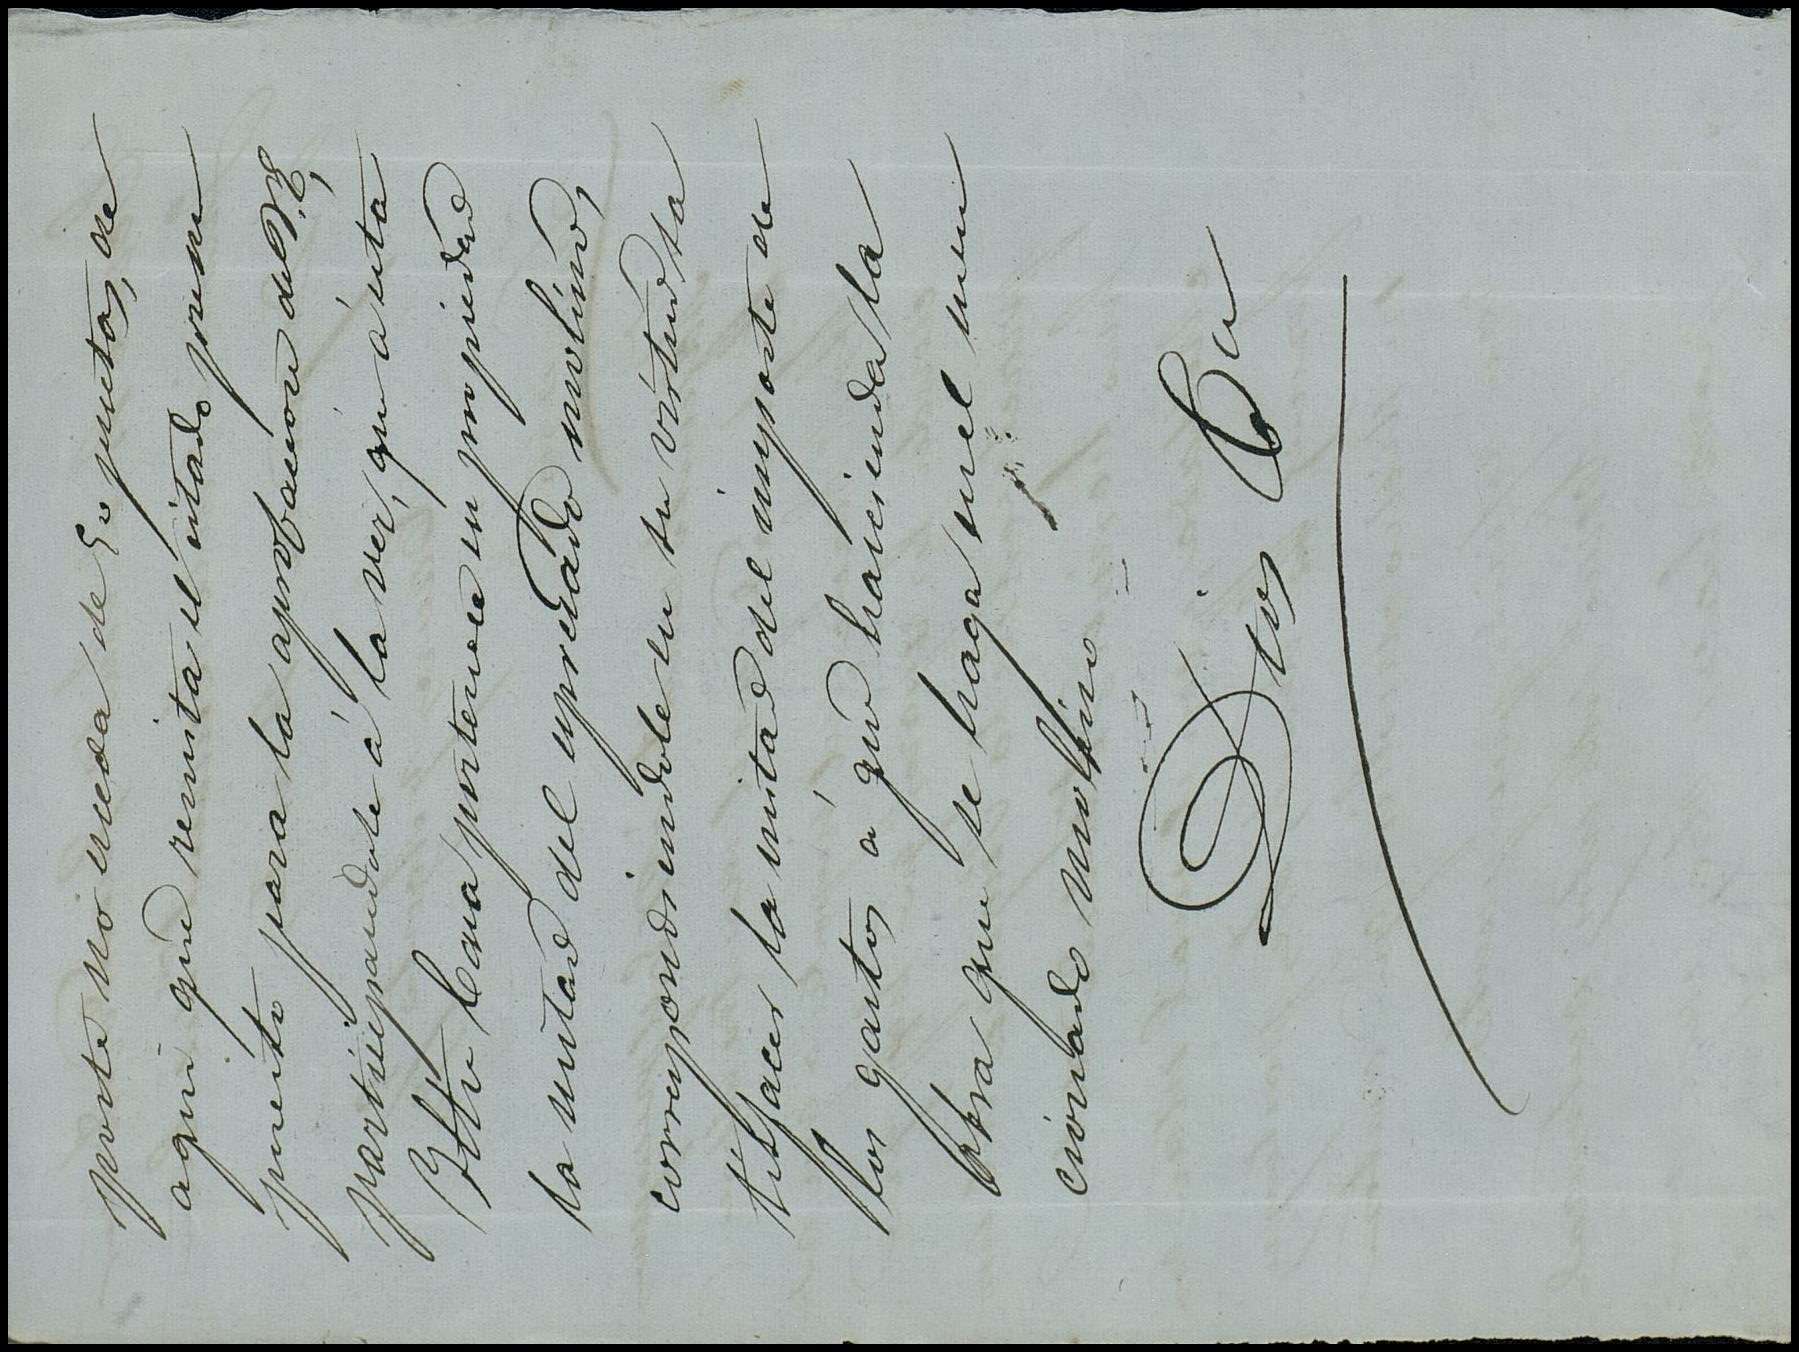 porte no exceda de Es puestos, de
aqui que remita el citado presu
puesto para la aprobacion de V.E.,
participandole á la vez, que á esta
Iltre Casa pertenece en propiedad
la mitad del espresado molino,
correspondiendole en su virtud sa
tisfacer la mitad del importe de
los gastos á que haciende la
obra que se haga en el men
cionado molino
Dios &a